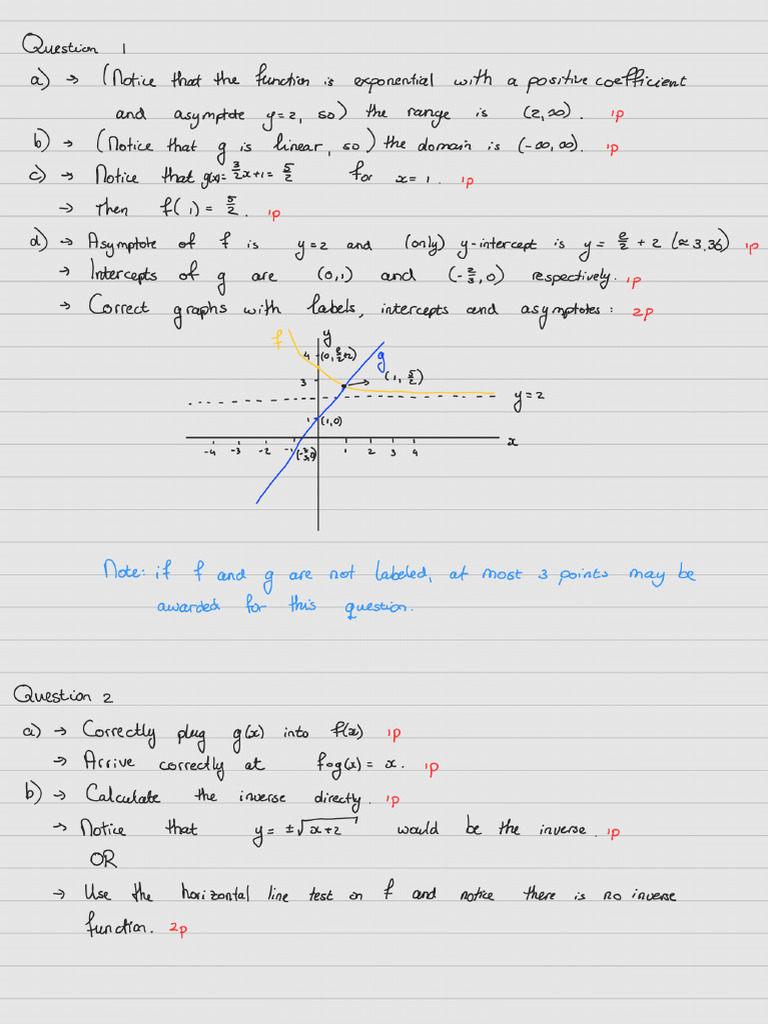 Question 1
a) → (Notice that the function is exponential with a positive coefficient
and asymptote y=2, so) the range is (2,∞). 1p
b) → (Notice that g is linear, so) the domain is (-∞,∞). 1p
c) → Notice that g(x)= 3/2 x+1 = 5/2 for x=1. 1p
→ Then f(1) = 5/2. 1p
d) → Asymptote of f is y=2 and (only) y-intercept is y= e/2 + 2 (≈3,36) 1p
→ Intercepts of g are (0,1) and (-2/3,0) respectively. 1p
→ Correct graphs with labels, intercepts and asymptotes: 2p
f y
4 (0, e/2+2) g
3 (1, 5/2)
y=2
1 (1,0)
x
-4 -3 -2 -1 1 2 3 4
(-2/3,0)
Note: if f and g are not labeled, at most 3 points may be
awarded for this question.
Question 2
a) → Correctly plug g(x) into f(x) 1p
→ Arrive correctly at f∘g(x) = x. 1p
b) → Calculate the inverse directly. 1p
→ Notice that y= ±√(x+2) would be the inverse. 1p
OR
→ Use the horizontal line test on f and notice there is no inverse
function. 2p